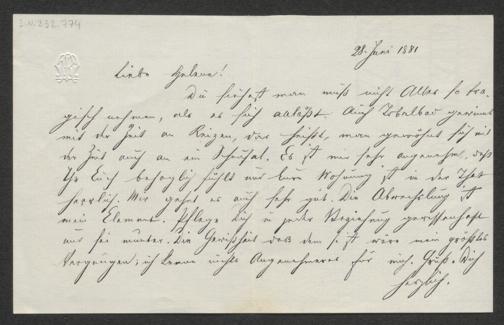 I.N. 232.774
28. Juni 1881
Liebe Helene!
Du siehst man muß nicht Alles so tra-
gisch nehmen, als es sich anläßt. Auch Tobelbad gewinnt
mit der Zeit an Reizen, das heißt, man gewöhnt sich mit
der Zeit auch an ein Scheusal. Es ist mir sehr angenehm, daß
Ihr Euch behaglich fühlt und Eure Wohnung ist in der That
herrlich. Mir geht es auch sehr gut. Die Abwechslung ist
mein Element. Pflege Dich in jeder Beziehung gewissenhaft
und sei munter. Die Gewißheit daß dem so ist wäre mein größtes
Vergnügen; ich kenne nichts Angenehmeres für mich. Grüß Dich
herzlich.